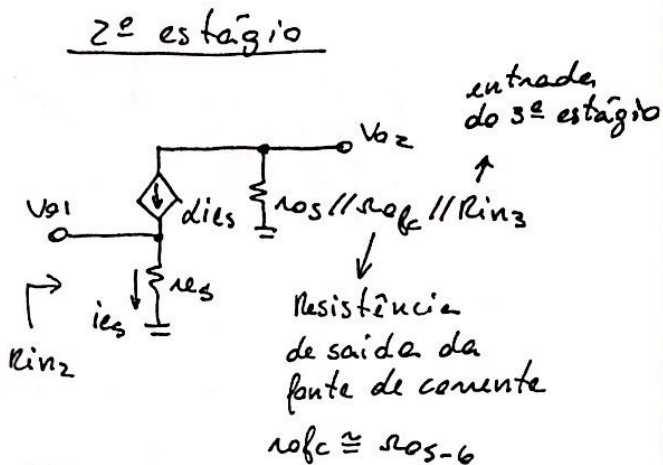 2º estágio
entrada
do 3º estágio
Vo2
Vo1
αie5
ro5//rofc//Rin3
re5
ie5
Rin2
Resistência
de saída da
fonte de corrente
rofc ≅ ro5-6